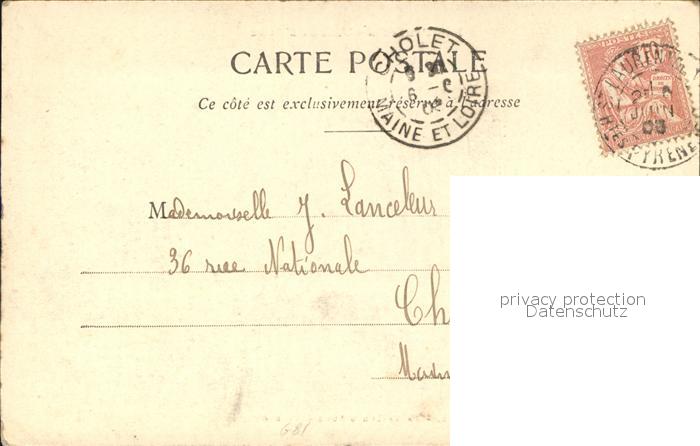 CARTE POSTALE
Ce côté est exclusivement réservé à l'adresse
CHOLET
MAINE ET LOIRE
Mademoiselle J. Lanceleur
36 rue Nationale
Ch
privacy protection
Datenschutz
681